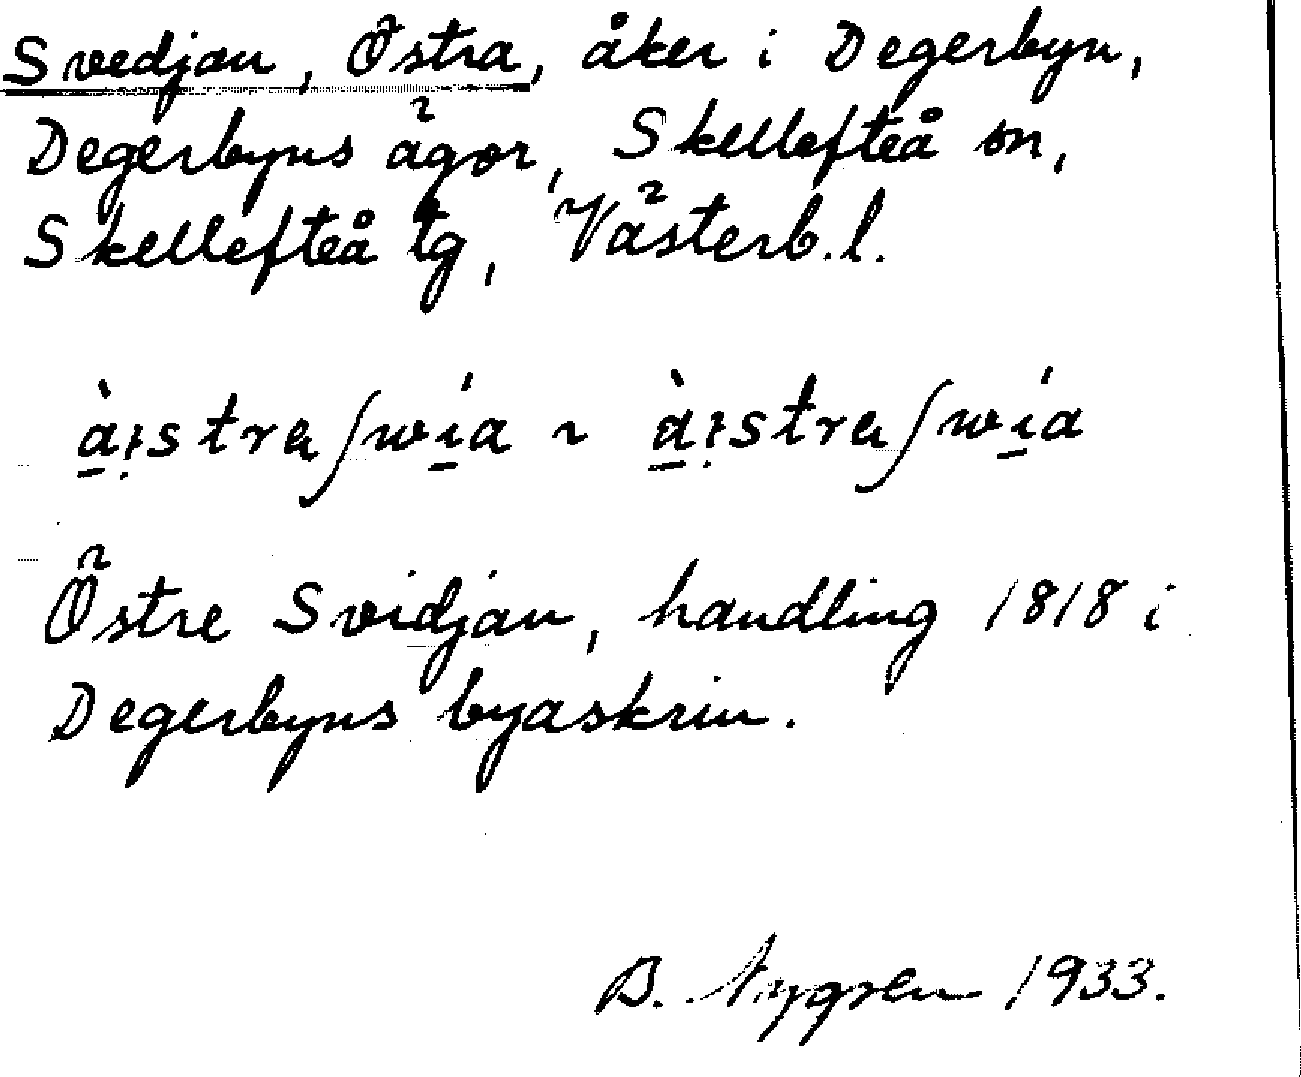 Svedjan, Östra, åker i Degerbyn,
Degerbyns ägor, Skellefteå sn,
Skellefteå tg, Västerb.l.
à̱ı̣straʃwí̱a ~ à̱ı̣straʃwí̱a
Östre Svidjan, handling 1818 i
Degerbyns byaskrin.
B. Nygren 1933.